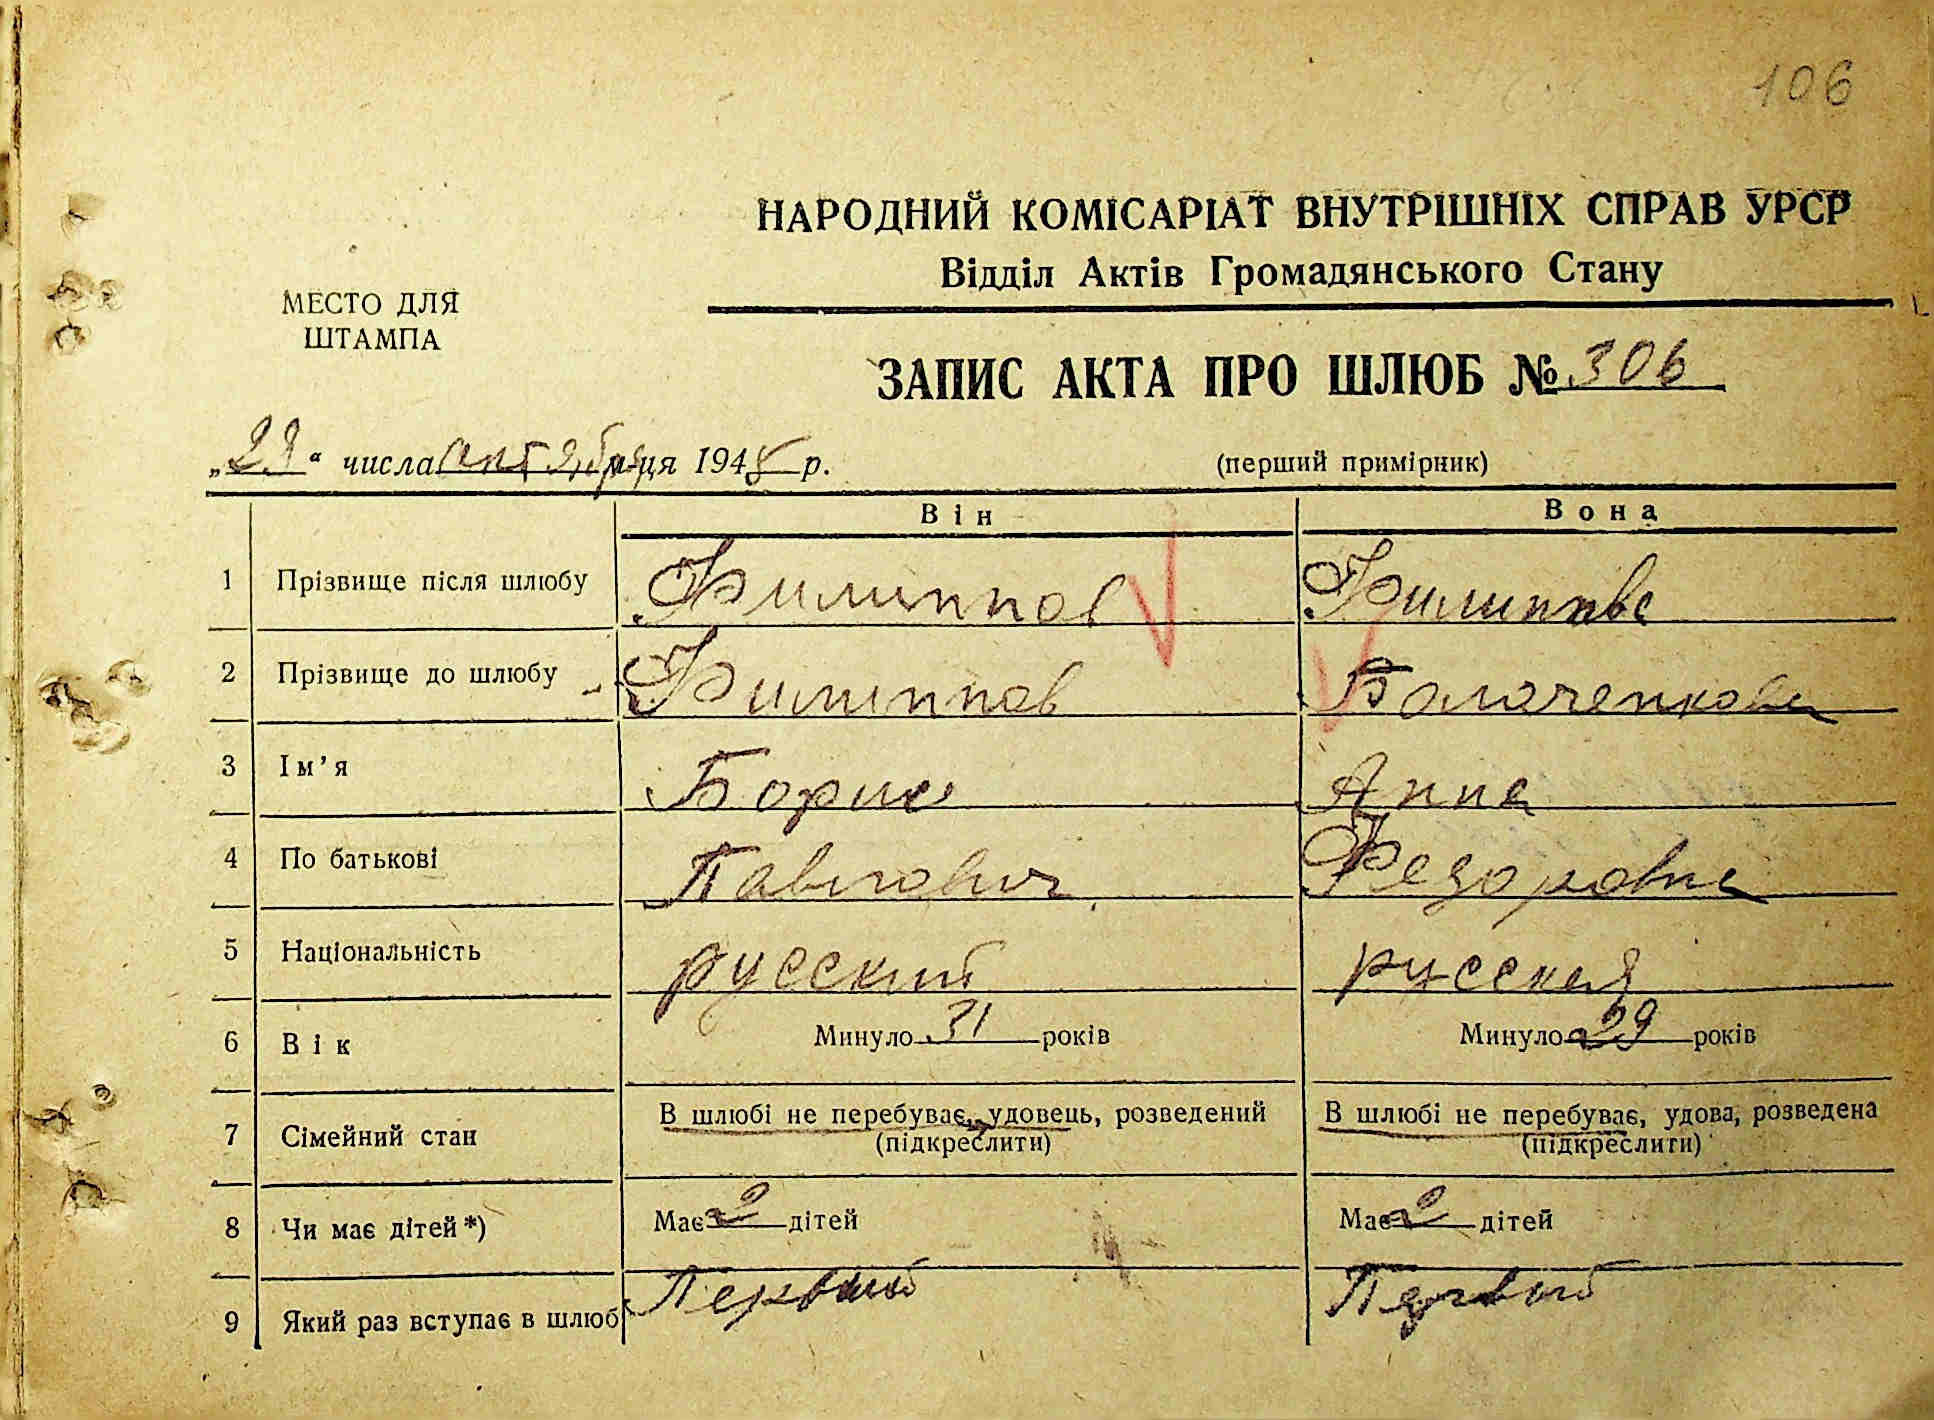 106
НАРОДНИЙ КОМІСАРІАТ ВНУТРІШНІХ СПРАВ УРСР
Відділ Актів Громадянського Стану
МЕСТО ДЛЯ
ШТАМПА
ЗАПИС АКТА ПРО ШЛЮБ № 306
числа октября м-ця 194 р.
(перший примірник)
Він Вона
1 Прізвище після шлюбу Филиппов Филиппва
2 Прізвище до шлюбу Филиппов
3 Ім'я Борис Анна
4 По батькові Павлович Федоровна
5 Національність русский русская
6 Вік Минуло 31 років Минуло 29 років
7 Сімейний стан В шлюбі не перебуває, удовець, розведений (підкреслити) В шлюбі не перебуває, удова, розведена (підкреслити)
8 Чи має дітей*) Має 2 дітей Має 2 дітей
9 Який раз вступає в шлюб Первый Первый